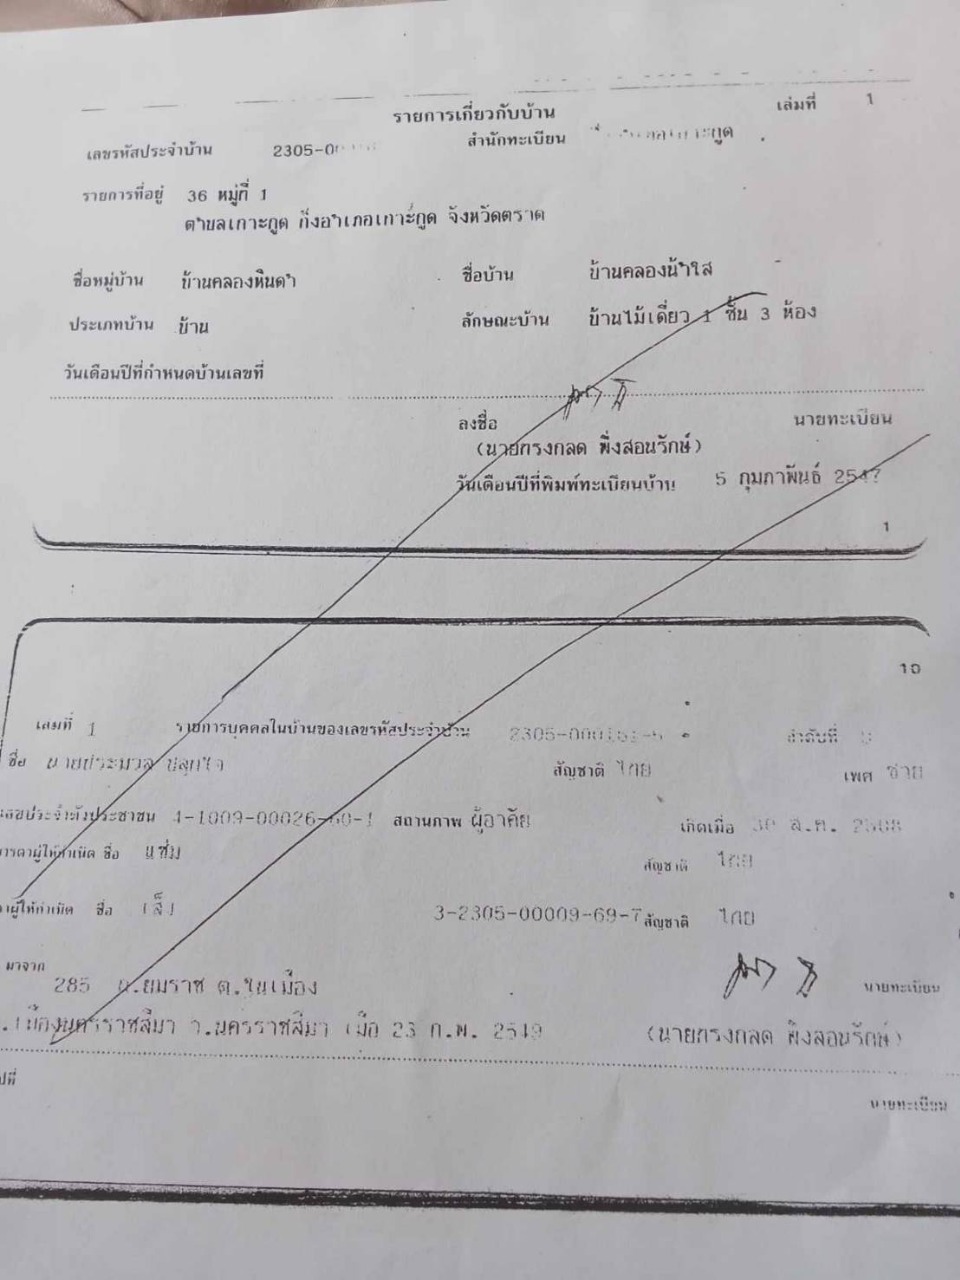 เล่มที่ 1
รายการเกี่ยวกับบ้าน
เลขรหัสประจำบ้าน 2305-0 สำนักทะเบียน
รายการที่อยู่ 36 หมู่ที่ 1
ตำบลเกาะกูด กิ่งอำเภอเกาะกูด จังหวัดตราด
ชื่อหมู่บ้าน บ้านคลองหินดำ ชื่อบ้าน บ้านคลองน้ำใส
ประเภทบ้าน บ้าน ลักษณะบ้าน บ้านไม้เดี่ยว 1 ชั้น 3 ห้อง
วันเดือนปีที่กำหนดบ้านเลขที่
ลงชื่อ นายทะเบียน
(นายทรงกลด พึ่งสอนรักษ์)
วันเดือนปีที่พิมพ์ทะเบียนบ้าน 5 กุมภาพันธ์ 2547
1
10
เล่มที่ 1 รายการบุคคลในบ้านของเลขรหัสประจำบ้าน ลำดับที่
ชื่อ นายประมวล สัญชาติ ไทย เพศ ชาย
เลขประจำตัวประชาชน สถานภาพ ผู้อาศัย เกิดเมื่อ
มารดาผู้ให้กำเนิด ชื่อ แช่ม สัญชาติ ไทย
ผู้ให้กำเนิด ชื่อ 3-2305-00009-69-7 สัญชาติ ไทย
มาจาก
285 ถ.ยมราช ต.ในเมือง นายทะเบียน
อ.เมืองนครราชสีมา จ.นครราชสีมา เมื่อ 23 ก.พ. 2549 (นายทรงกลด พึ่งสอนรักษ์)
นายทะเบียน